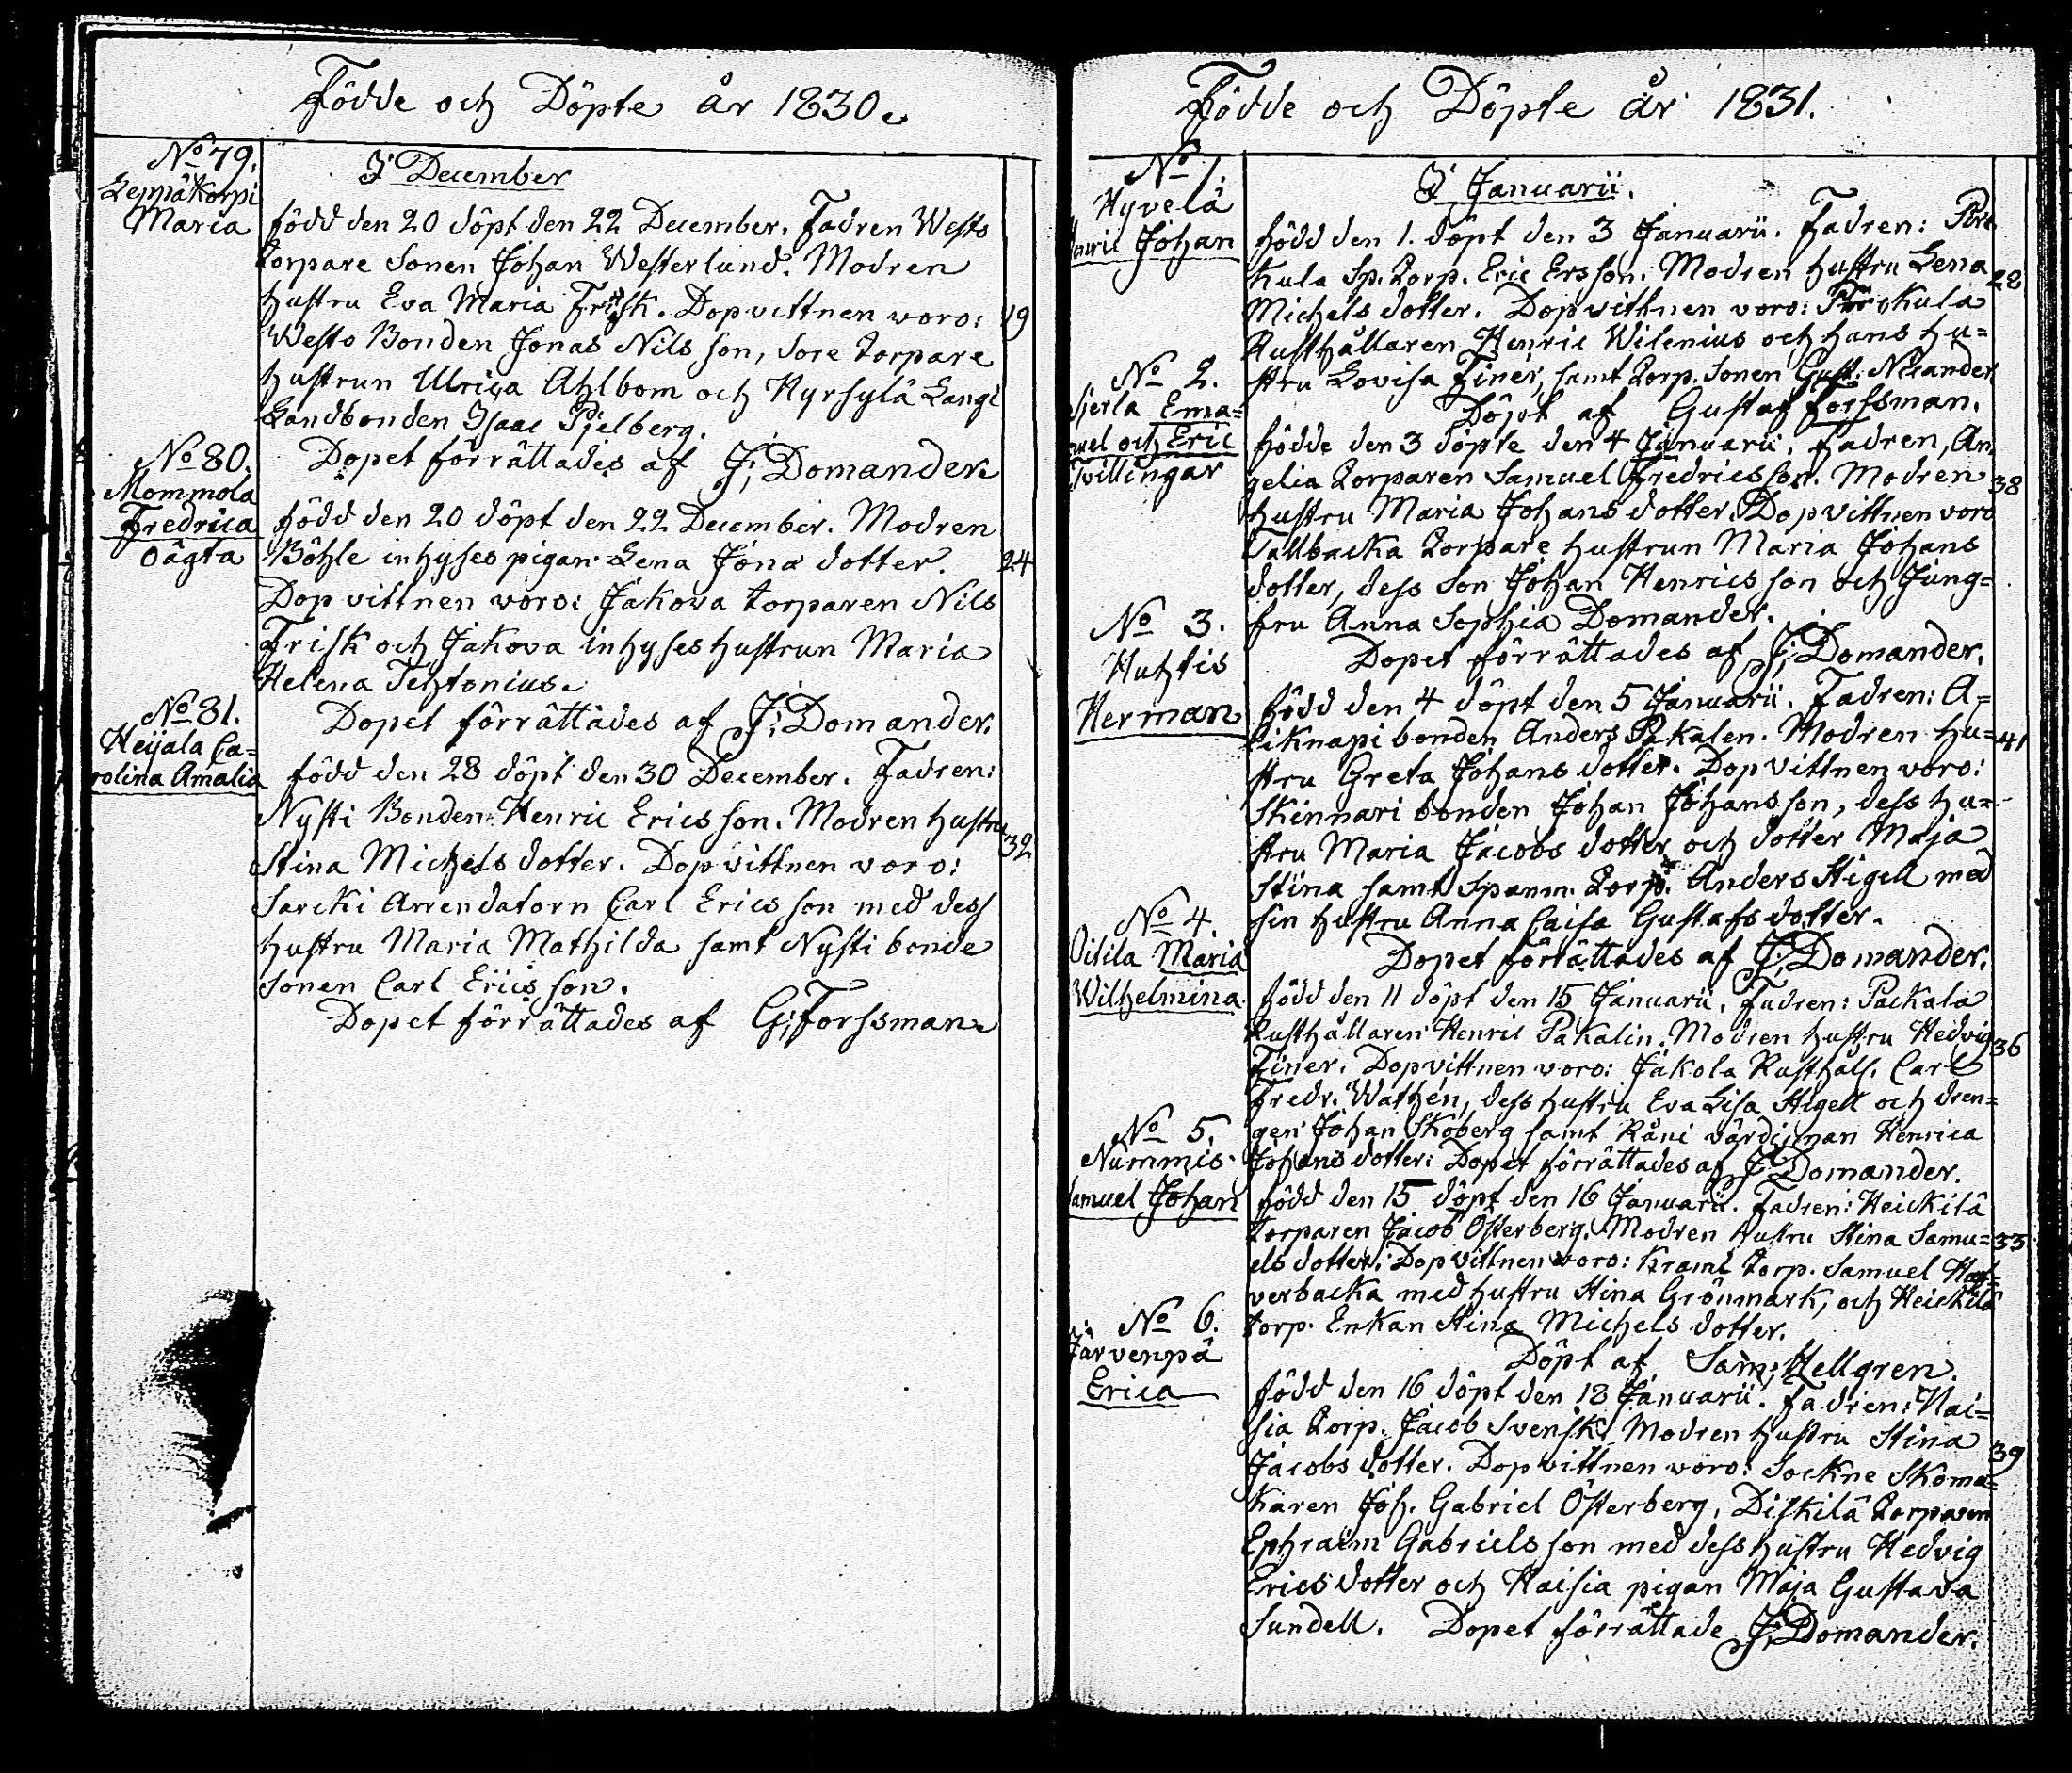 Födde och Döpte år 1830.
No 79.
Leppäkorpi
Maria
I December
född den 20 döpt den 22 December. Fadren Westo
torpare Sonen Johan Westerlund. Modren
hustru Eva Maria Frisk. Dopvittnen woro: 19
Westo Bonden Jonas Nils son, Sore torpare
hustrun Ulrica Ahlbom och Hyrsylä Langi
Landbonden Isaac Pjelberg.
Dopet förrättades af J. Domander.
No 80.
Mommola
Fredrica
oägta
född den 20 döpt den 22 December. Modren
Böhle inhyses pigan Lena Jona dotter. 24
Dop vittnen woro: Jakova torparen Nils
Frisk och Jakova inhyses hustrun Maria
Helena Tehtonius.
Dopet förrättades af J. Domander.
No 81.
Heijala Ca=
rolina Amalia
född den 28 döpt den 30 December. Fadren:
Nysti Bonden Henric Erics son. Modren hustru
Stina Michels dotter. Dop vittnen voro: 32
Sarcki Arrendatorn Carl Erics son med dess
hustru Maria Mathilda samt Nysti bonde
Sonen Carl Erics son.
Dopet förrättades af G. Forssman.
Födde och Döpte år 1831.
No 1.
Hyvelä
Henric Johan
I Januarii.
född den 1. döpt den 3 Januarii. Fadren:
kula Sp. Torp. Eric Ersson. Modren hustru Lena 28
Michels dotter. Dopvittnen voro: kula
Rusthållaren Henric Wilenius och hans hu=
stru Lovisa Finér, samt Torp. Sonen Gust. Nisander
Döpt af Gustaf Forssman.
No 2.
Sjerla Ema=
nuel och Eric
Tvillingar
födde den 3 döpte den 4 Januarii. Fadren, An
gelia Torparen Samuel Fredrics son. Modren 38
hustru Maria Johans dotter. Dop vittnen voro
Tallbacka Torpare hustrun Maria Johans
dotter, dess Son Johan Henrics son och Jung=
fru Anna Sophia Domander.
Dopet förrättades af J. Domander.
No 3.
Huhtis
Herman
född den 4 döpt den 5 Januarii. Fadren: A=
iknapi bonden Anders Pakalen. Modren hu= 41
stru Greta Johans dotter. Dopvittnen voro:
Skinnari bonden Johan Johansson, dess hu=
stru Maria Jacobs dotter och dotter Maja
Stina samt Spanm. Torp. Anders Stigell med
sin hustru Anna Caisa Gustafs dotter.
Dopet förrättades af J. Domander.
No 4.
Oitila Maria
Wilhelmina
född den 11 döpt den 15 Januarii. Fadren: Packala
Rusthållaren Henric Pakalin. Modren hustru Hedvig 36
Finer. Dopvittnen voro: Jakola Rusthåll. Carl
Fredr. Wathén, dess hustru Eva Lisa Stigell och dren=
gen Johan Skoberg samt Råni värdinnan Henrica
Johans dotter. Dopet förrättades af J. Domander.
No 5.
Nummis
Samuel Johan
född den 15 döpt den 16 Januarii. Fadren: Heickilä
torparen Jacob Österberg. Modren hustru Stina Samu= 33
els dotter. Dopvittnen voro: Kraml Torp. Samuel
verbacka med hustru Stina Grönmark, och Heickilä
torp. Enkan Stina Michels dotter.
Döpt af Sam. Hellgren.
No 6.
Järvenpä
Erica
född den 16 döpt den 18 Januarii. Fadren: Hai=
sia Torp. Jacob Svensk. Modren hustru Stina 39
Jacobs dotter. Dopvittnen voro: Sockne Skoma=
karen Joh. Gabriel Österberg, Diskilä torparen
Ephraim Gabriels son med dess hustru Hedvig
Erics dotter och Haisia pigan Maja Gustava
Sundell. Dopet förrättade J. Domander.